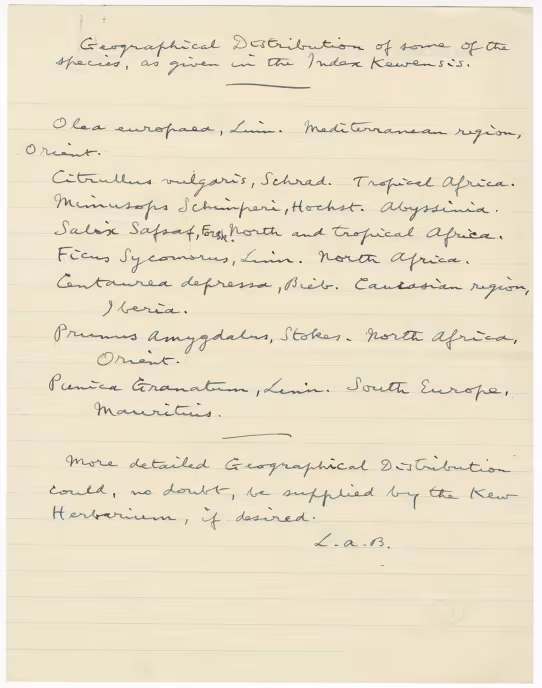 Geographical Distribution of some of the
species, as given in the Index Kewensis.
Olea europaea, Linn. Mediterranean region,
Orient.
Citrullus vulgaris, Schrad. Tropical Africa.
Mimusops Schimperi, Hochst. Abyssinia.
Salix Safsaf, Forsk. North and tropical Africa.
Ficus Sycomorus, Linn. North Africa.
Centaurea depressa, Bieb. Caucasian region,
Iberia.
Prunus Amygdalus, Stokes. North Africa,
Orient.
Punica Granatum, Linn. South Europe,
Mauritius.
More detailed Geographical Distribution
could, no doubt, be supplied by the Kew
Herbarium, if desired.
L.A.B.